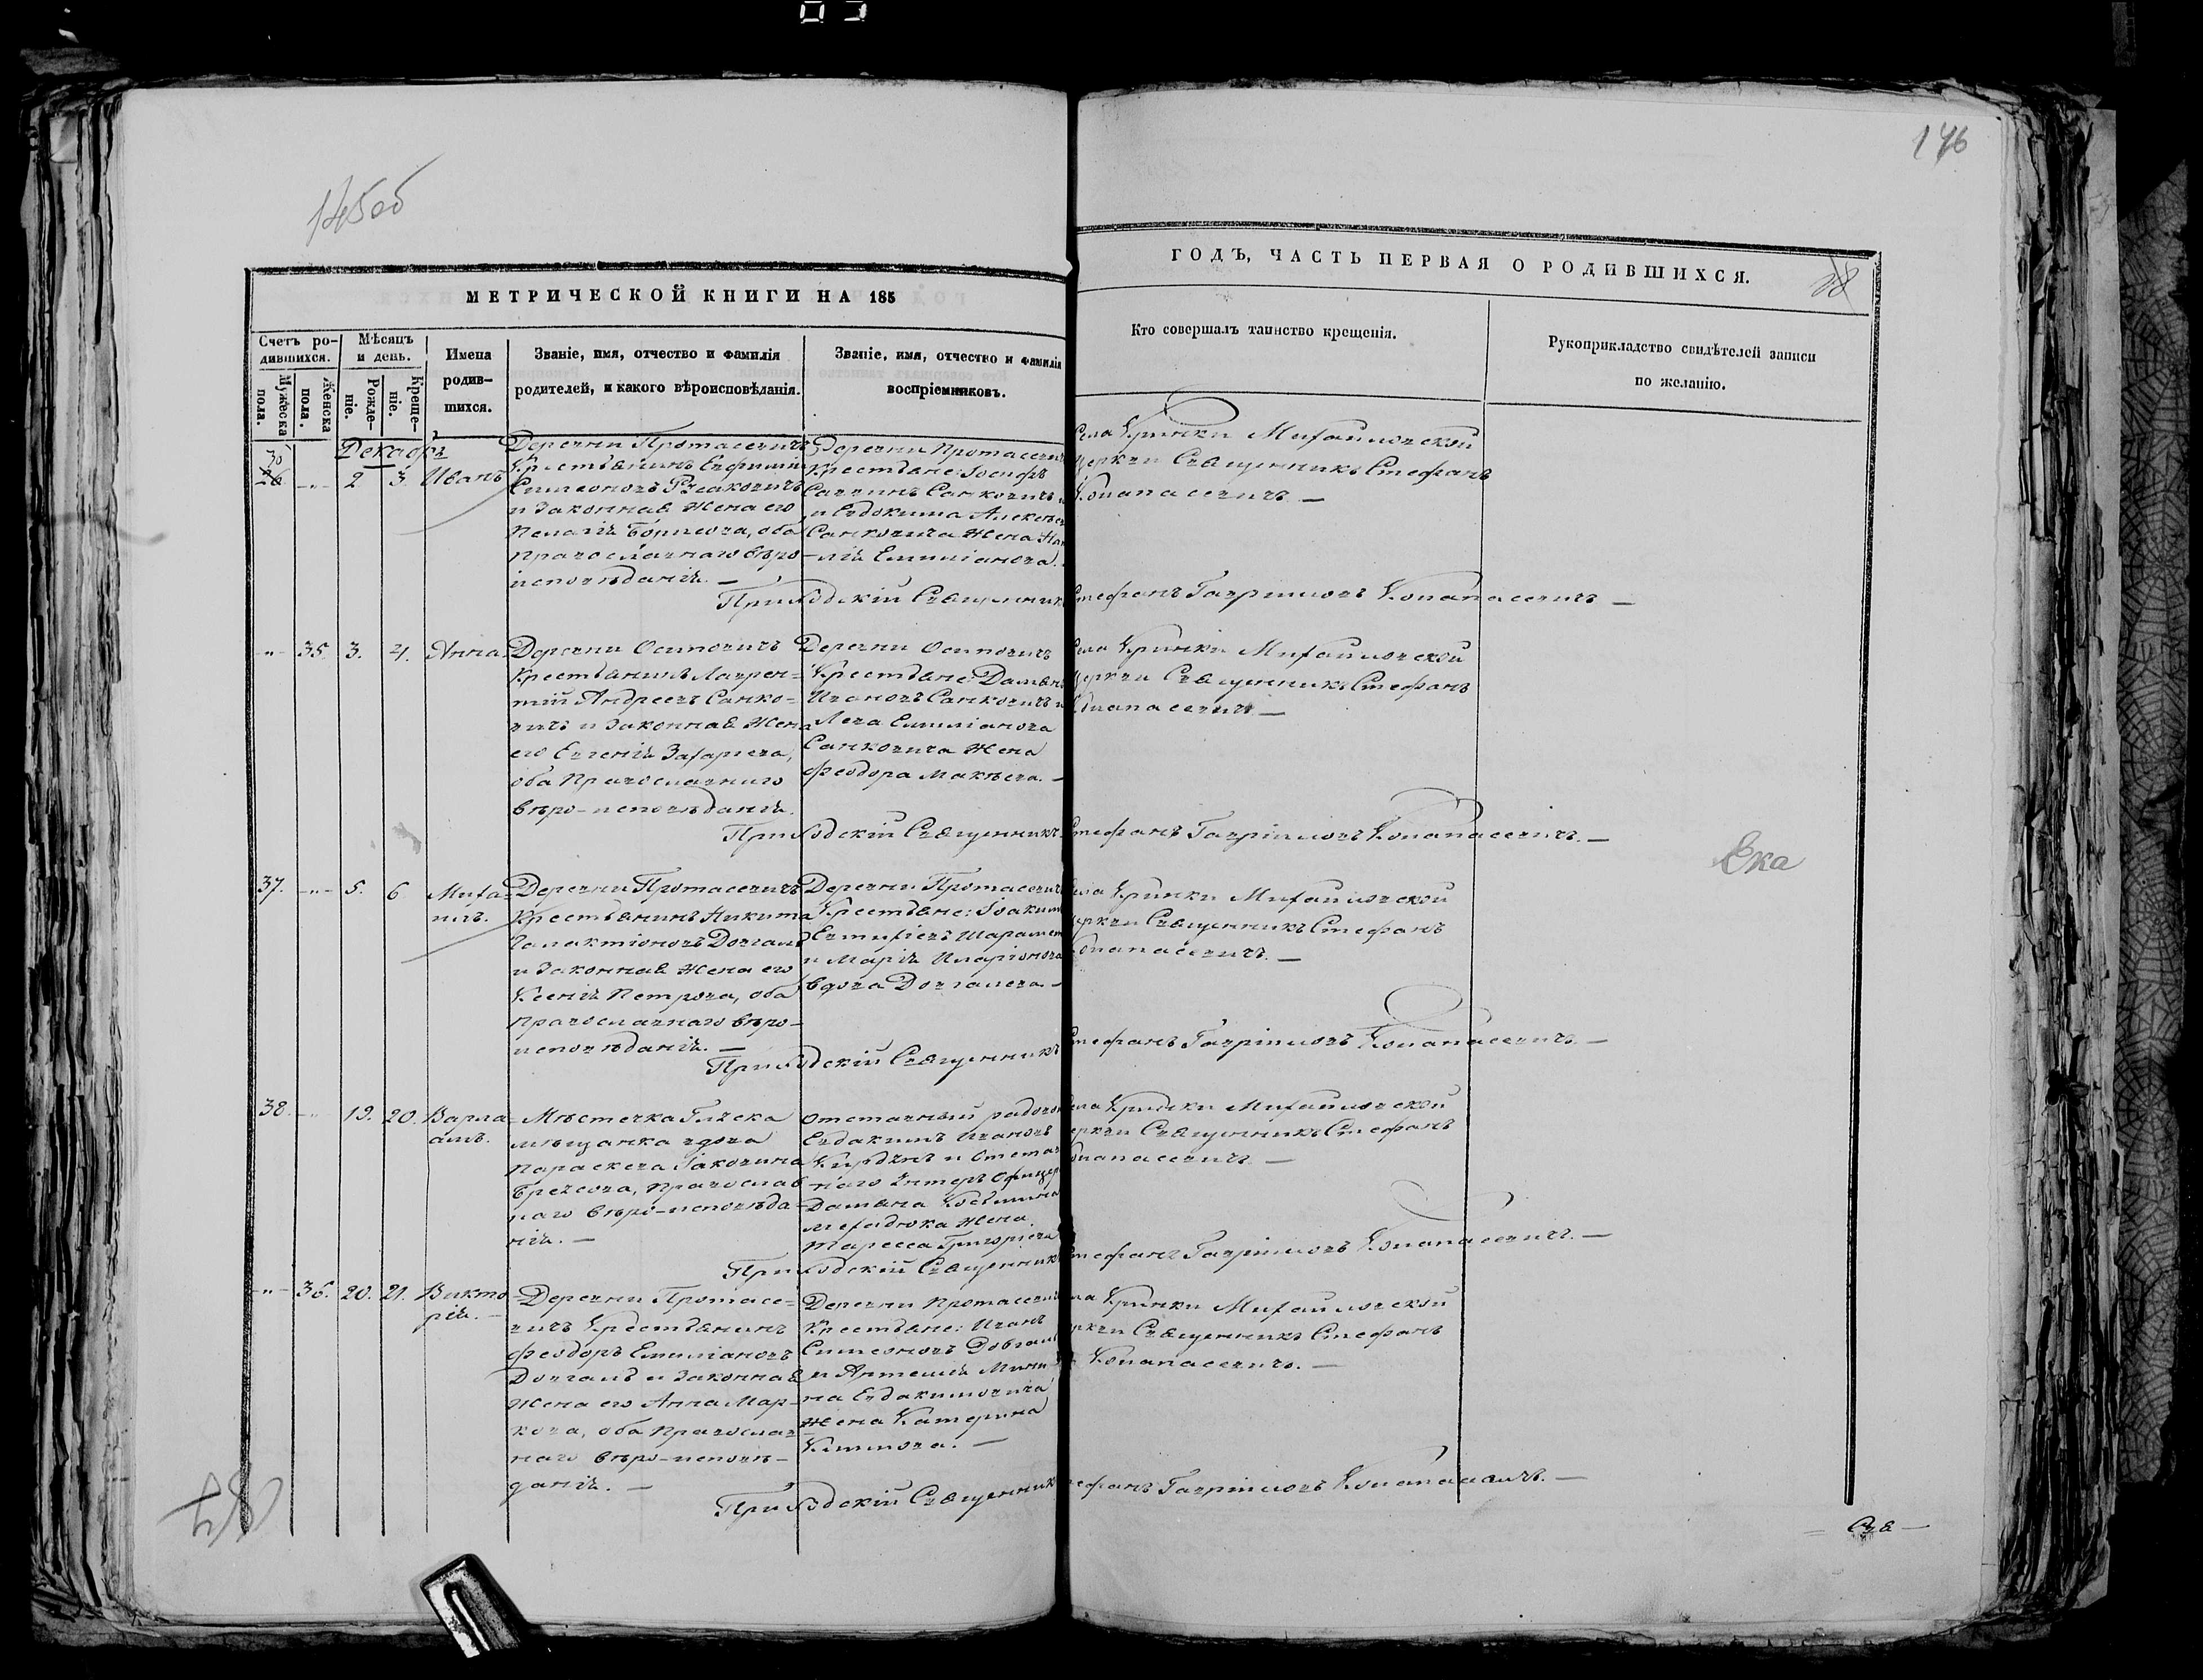 146
145об
МЕТРИЧЕСКОЙ КНИГИ НА 185
ГОДЪ, ЧАСТЬ ПЕРВАЯ О РОДИВШИХСЯ.
38
Счетъ ро-
дившихся.
Мужеска
пола.
Женска
пола.
Мѣсяцъ
и день.
Рожде-
ніе.
Креще-
ніе.
Имена
родив-
шихся.
Званіе, имя, отчество и фамилія
родителей, и какого вѣроисповѣданія.
Званіе, имя, отчество и фамилія
воспріемниковъ.
Кто совершалъ таинство крещенія.
Рукоприкладство свидѣтелей записи
по желанію.
Декабрь
2 3. Иванъ
Деревни Протасевичъ
Крестьянинъ
Симеоновъ
и законная жена его
Пелагія Борисова, оба
православнаго вѣро-
исповѣданія. —
Деревни Протасевичъ
Крестьяне: Іосифъ
Саввинъ Санковичъ
и Евдокима
Санковича жена
Емиліанова.
Села Кринки Михайловской
Церкви Священникъ Стефанъ
Конапасевичъ —
Приходскій Священникъ Стефанъ Гавріиловъ Конапасевичъ —
-"- 35. 3. 4. Анна.
Деревни Осиповичъ
Крестьянинъ Лаврен-
тій Андреевъ Санко-
вичъ и законная жена
его Евгенія Захарьева,
оба православнаго
вѣро-исповѣданія.
Деревни Осиповичъ
Крестьяне: Даміанъ
Ивановъ Санковичъ и
Лева Емиліанова
Санковича жена
Феодора Макѣева. —
Села Кринки Михайловской
Церкви Священникъ Стефанъ
Конапасевичъ —
Приходскій Священникъ Стефанъ Гавріиловъ Конапасевичъ. —
37. -"- 5. 6 Миха-
илъ.
Деревни Протасевичъ
Крестьянинъ Никита
Галактіоновъ Довгалъ
и законная жена его
Ксенія Петрова, оба
православнаго вѣро-
исповѣданія. —
Деревни Протасевичъ
Крестьяне: Іоакимъ
Евтихіевъ
и Марія Иларіонова
вдова Довгалева. —
Села Кринки Михайловской
Церкви Священникъ Стефанъ
Конапасевичъ. —
Приходскій Священникъ Стефанъ Гавріиловъ Конапасевичъ. —
38. -"- 19. 20. Варла-
амъ.
Мѣстечка Глуска
мѣщанка вдова
Параскева Іаковина
православ-
наго вѣро-исповѣда-
нія. —
Отставный рядовой
Евдакимъ Ивановъ
и Отстав-
наго Унтеръ Офицера
Даміана
жена
Григоріева
Села Кринки Михайловской
Церкви Священникъ Стефанъ
Конапасевичъ —
Приходскій Священникъ Стефанъ Гавріиловъ Конапасевичъ. —
-"- 36. 20. 21. Викто-
рія. —
Деревни Протасе-
вичъ Крестьянинъ
Феодоръ Емиліановъ
Довгалъ и законная
жена его Анна Мар-
кова, оба православ-
наго вѣро-исповѣ-
данія. —
Деревни Протасевичъ
Крестьяне: Иванъ
Симеоновъ Довгалъ
на Евдакимовича
жена Катерина
Климова. —
Села Кринки Михайловской
Церкви Священникъ Стефанъ
Конапасевичъ. —
Приходскій Священникъ Стефанъ Гавріиловъ Конапасевичъ. —